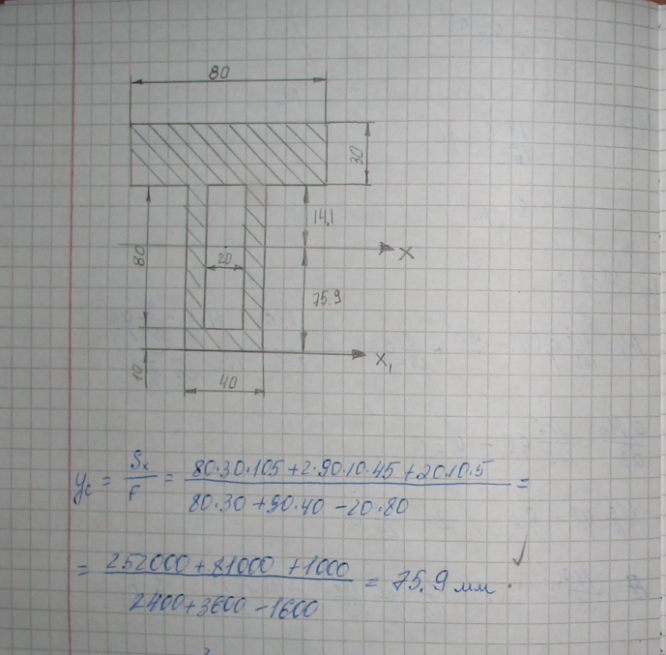 80
30
14.1
80
20
X
75.9
X₁
10
40
y_c = Sₓ/F = (80·30·105 + 2·90·10·45 + 20·10·5)/(80·30 + 90·40 - 20·80) =
= (252000 + 81000 + 1000)/(2400 + 3600 - 1600) = 75.9 мм.